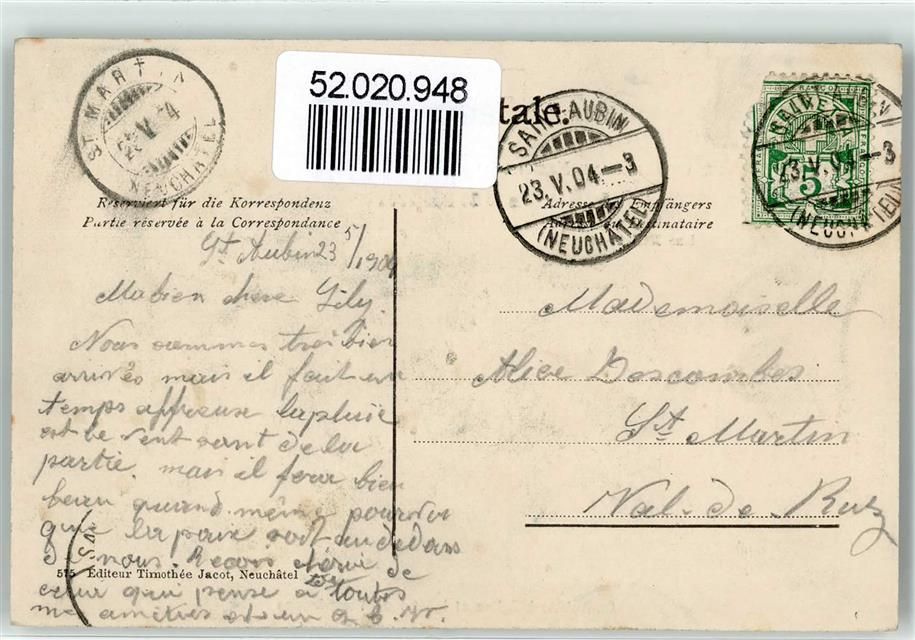 52.020.948
tale.
ST MARTIN
V
NEUCHATEL
SAINT-AUBIN
23.V.04-3
(NEUCHÂTEL)
23.V.04-3
(NEUCHATEL)
5
Reserviert für die Korrespondenz
Partie réservée à la Correspondance
Adresse des Empfängers
Adresse du Destinataire
St Aubin 23 5/1904
Ma bien chere Lily
Nous sommes très bien
arrivés mais il fait un
temps affreuse la pluie
et le vent sont de la
partie. mais il fera bien
beau quand même pourvu
que la paix soit au dedans
de nous. Recois de
575 Editeur Timothée Jacot, Neuchâtel
celui qui pense à toutes
Mademoiselle
Alice Descombes
St. Martin
Val-de-Ruz